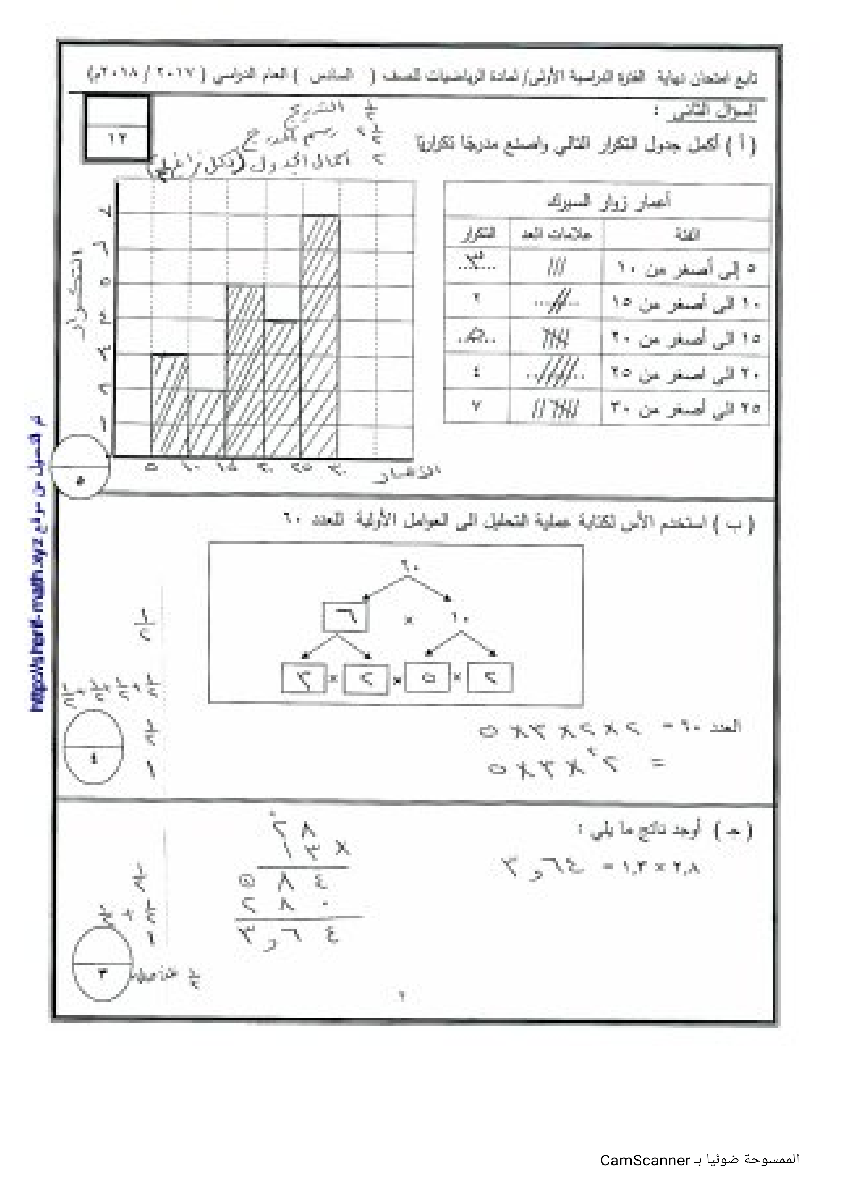 تابع امتحان نهاية الفترة الدراسية الأولى/ لمادة الرياضيات للصف ( السادس ) العام الدراسي ( ٢٠١٧ / ٢٠١٨م)
السؤال الثاني :
١٢
١/٢ التدريج
رسم المدرج
٢ اكمال الجدول
( أ ) أكمل جدول التكرار التالي واصنع مدرجًا تكراريًا
أعمار زوار السيرك
الفئة علامات العد التكرار
٥ إلى أصغر من ١٠ /// ٣
١٠ الى أصغر من ١٥ // ٢
١٥ الى أصغر من ٢٠ ٥
٢٠ الى أصغر من ٢٥ //// ٤
٢٥ الى أصغر من ٣٠ ٧
التكرار
٧
٦
٥
٤
٣
٢
١
٥ ١٠ ١٥ ٢٠ ٢٥ ٣٠ الأعمار
٥
( ب ) استخدم الأس لكتابة عملية التحليل الى العوامل الأولية للعدد ٦٠
٦٠
٦ × ١٠
٣ × ٢ × ٥ × ٢
العدد ٦٠ = ٢ × ٢ × ٣ × ٥
= ٢² × ٣ × ٥
١/٢
١/٢ + ١/٢ + ١/٢ + ١/٢
١/٢
١
٤
( جـ ) أوجد ناتج ما يلي :
٢,٨ × ١,٣ = ٣,٦٤
٢ ٨
١ ٣ ×
٨ ٤
٢ ٨ ٠
٣,٦ ٤
٣
٢
http://sherif-math.xyz تم التحميل من موقع
الممسوحة ضوئيا بـ CamScanner